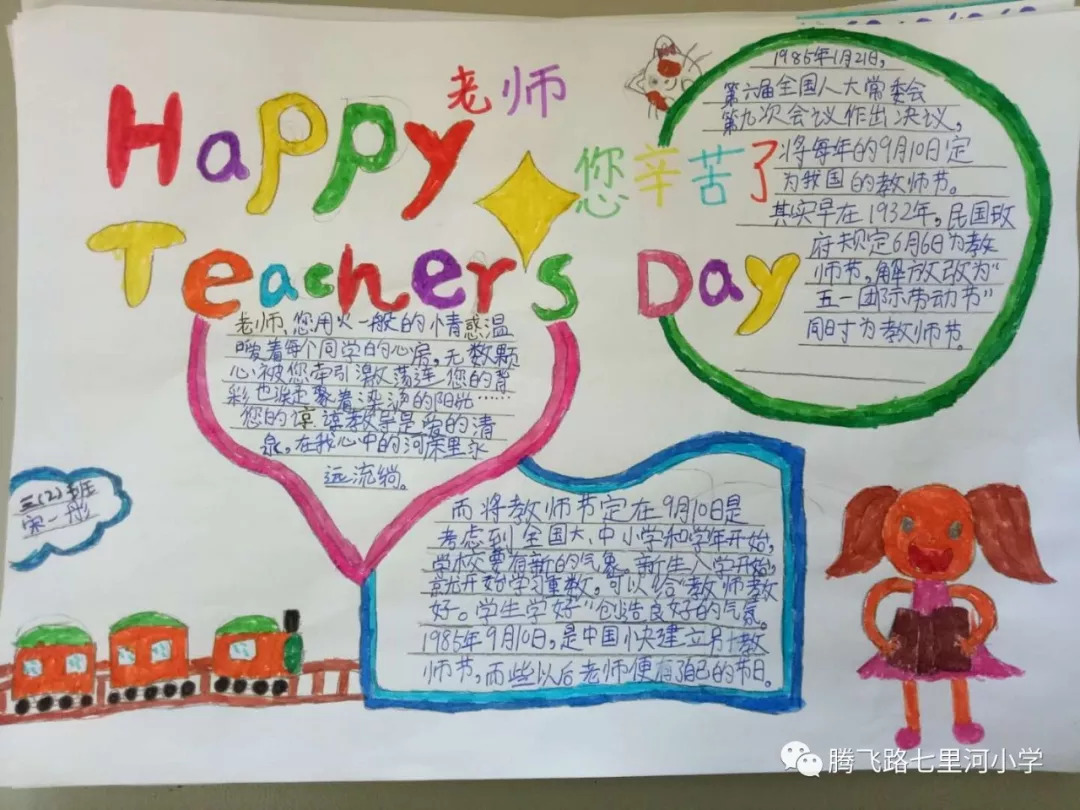 Happy
老师
您辛苦了
Teachers Day
1985年1月21日,
第六届全国人大常委会
第九次会议作出决议,
将每年的9月10日定
为我国的教师节。
其实早在1932年,民国政
府规定6月6日为教
师节,解放改为"
五一国际劳动节"
同时为教师节。
老师,您用火一般的情感温
暖着每个同学的心房,无数颗
心被您牵引激荡,连您的
彩也
的阳光……
您的谆谆教导是爱的清
泉,在我心中的河床里永
远流淌。
三(2)班
宋一彤
而将教师节定在9月10日是
考虑到全国大、中小学和学年开始,
学校要有新的气象。新生入学开始,
就开始学习重教,可以给"教师教
好。学生学好"创造良好的气氛。
1985年9月10日,是中国恢建立另个教
师节,而些以后老师便有了自己的节日。
腾飞路七里河小学